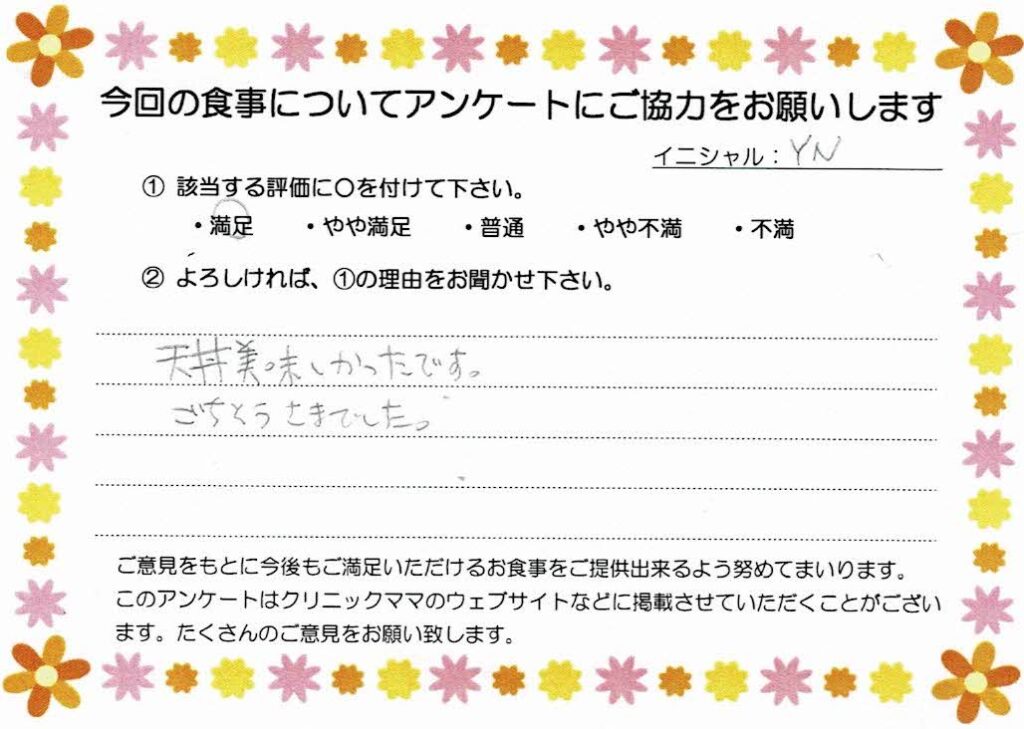 今回の食事についてアンケートにご協力をお願いします
イニシャル：YN
① 該当する評価に〇を付けて下さい。
・満足 ・やや満足 ・普通 ・やや不満 ・不満
② よろしければ、①の理由をお聞かせ下さい。
天丼美味しかったです。
ごちそうさまでした。
ご意見をもとに今後もご満足いただけるお食事をご提供出来るよう努めてまいります。
このアンケートはクリニックママのウェブサイトなどに掲載させていただくことがござい
ます。たくさんのご意見をお願い致します。